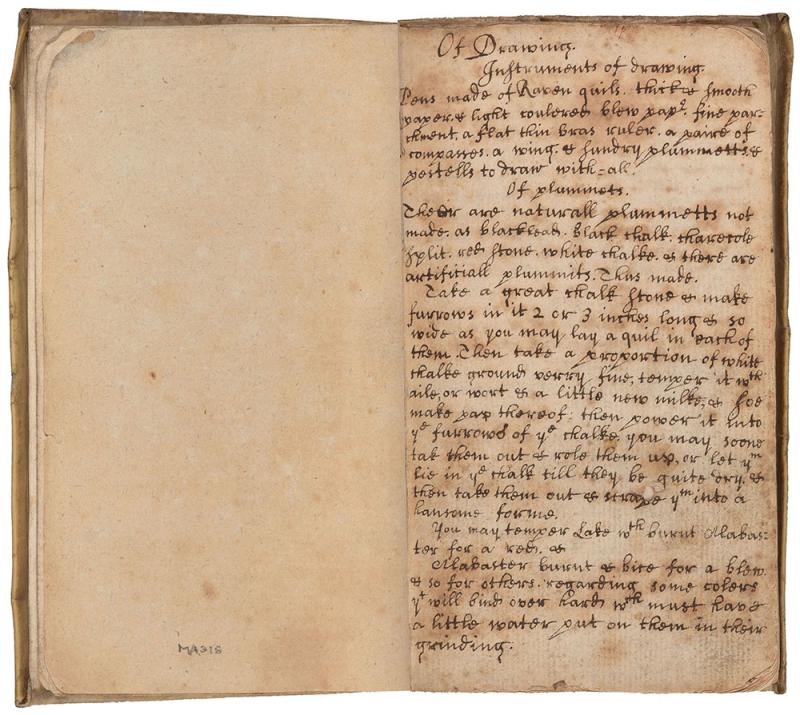 MA318
Of Drawing.
Instruments of drawing.
Pens made of Raven quils. thicke & smooth
paper. & light coulered blew papr. fine par-
chment. a flat thin bras ruler. a paire of
compasses. a wing. & sundry plummetts. &
pestells to draw with-all.
Of plummets.
Ther are naturall plummetts not
made. as blacklead. black chalk. charecole
split. red stone. white chalke. & there are
artificiall plummits. Thus made.
Take a great chalk stone & make
furrows in it 2 or 3 inches long & so
wide as you may lay a quil in each of
them. Then take a proportion of white
chalke ground verry fine, temper it wth
aile, or wort & a little new milke, & soe
make pap thereof: then power it into
ye furrows of ye chalke. you may soone
tak them out & role them up. or let ym
lie in ye chalk till they be quite dry. &
then take them out & scrape ym into a
hansome forme.
You may temper Lake wth burnt Alabas-
ter for a red. &
Alabaster burnt & bice for a blew.
& so for others. regarding some colers
yt will bind over hard wth must have
a little water put on them in their
grinding.